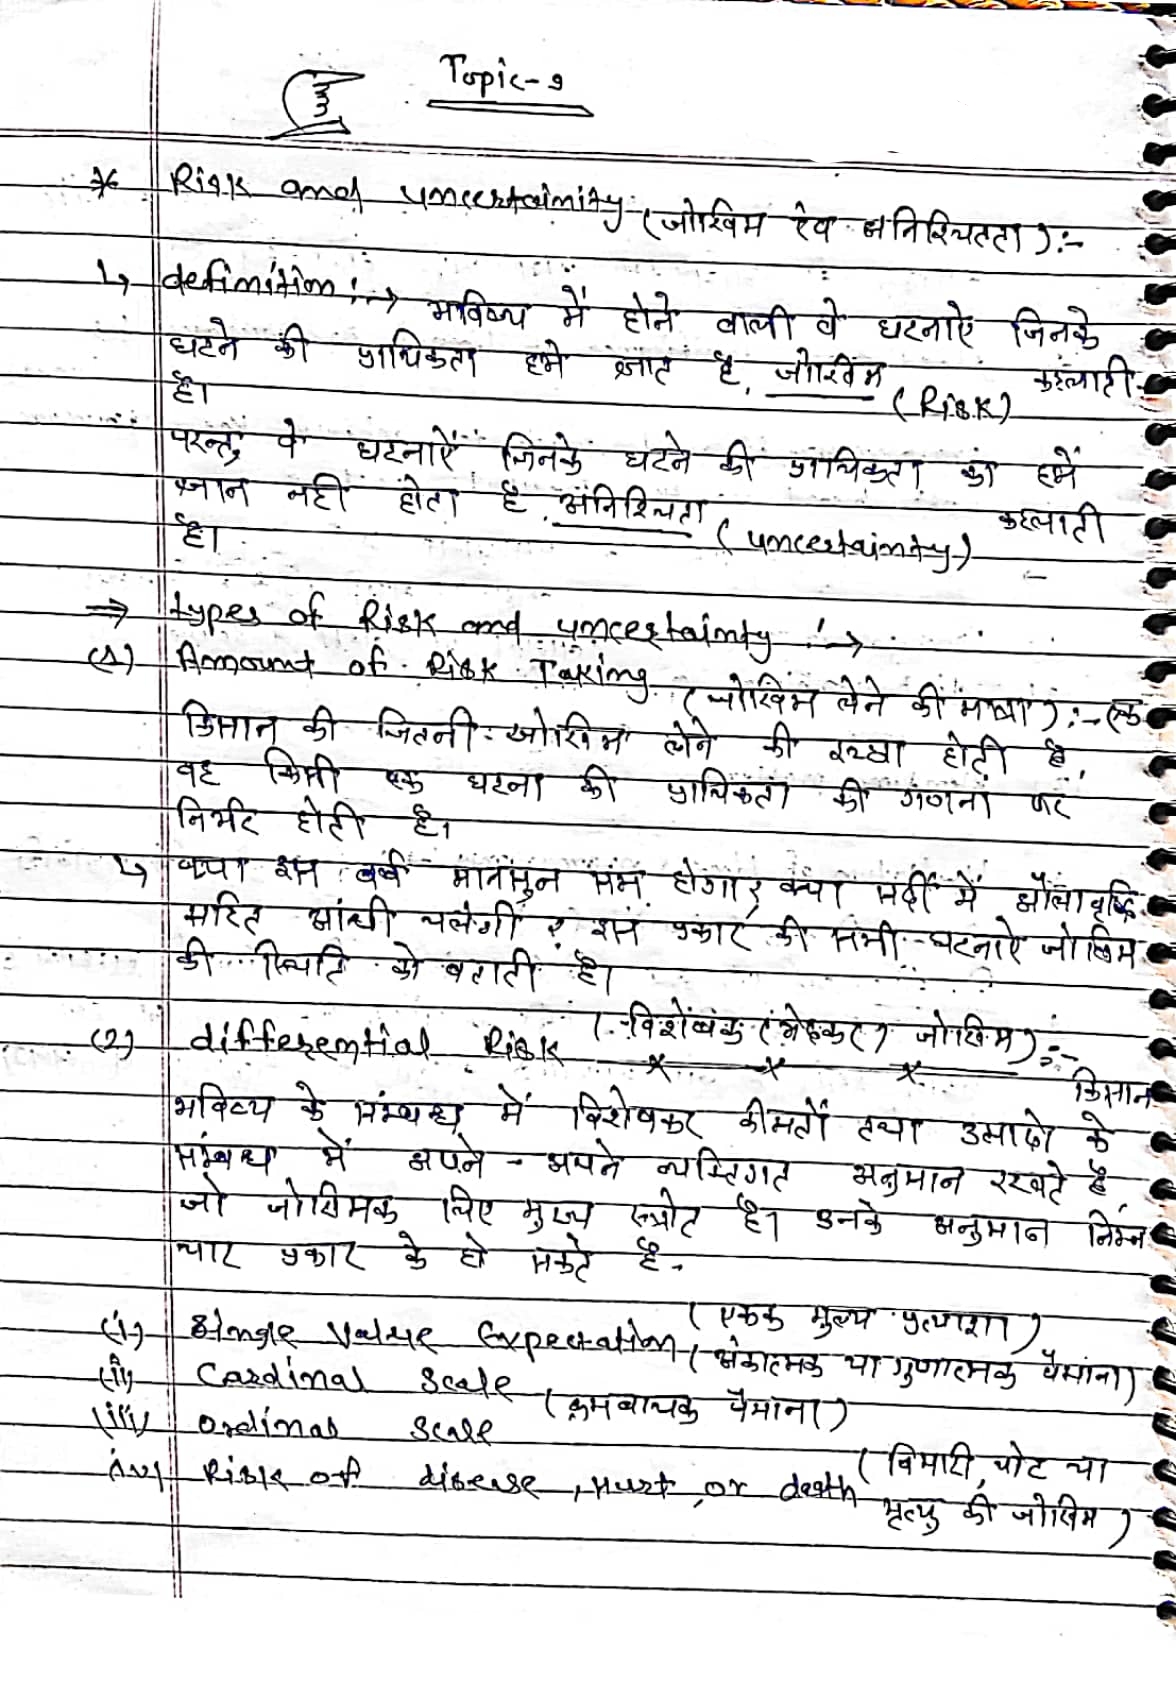 Topic-9
* Risk and uncertainity (जोखिम एंव अनिश्चितता ):-
↳ definition :→ भविष्य में होने वाली वे घटनाऐ जिनके
घटने की प्रायिकता हमे ज्ञात है, जोखिम (Risk) कहलाती
है।
परन्तु वे घटनाऐं जिनके घटने की प्रायिकता का हमें
ज्ञान नही होता है अनिश्चिता (uncertainty) कहलाती
है।
⇒ types of Risk and uncertainty :→
(1) Amount of Risk Taking (जोखिम लेने की मात्रा ) :- एक
किसान की जितनी जोखिम लेने की इच्छा होती है,
वह किसी एक घटना की प्रायिकता की गणना पर
निर्भर होती है।
↳ क्या इस वर्ष मानसुन सम होगा? क्या सर्दी में औलावृष्टि
सहित आंधी चलेगी ? इस प्रकार की सभी घटनाऐ जोखिम
की स्थिति को बताती है।
(2) differential Risk (विशेषक जोखिम ) :- किसान
भविष्य के सम्बन्ध में विशेषकर कीमतों तथा उत्पादो के
संम्बंध में अपने - अपने व्यक्तिगत अनुमान रखते है,
जो जोखिमक लिए मुख्य स्त्रोट है। उनके अनुमान निम्न
चार प्रकार के हो सकते है-
(i) Single Value Expectation (एकक मुल्य प्रत्याशा)
(ii) Cardinal Scale (अंकात्मक या गुणात्मक पैमाना)
(iii) ordinal scale (क्रमवाचक पैमाना)
(iv) Risk of disease, hurt, or death (बिमारी, चोट या
मृत्यु की जोखिम )